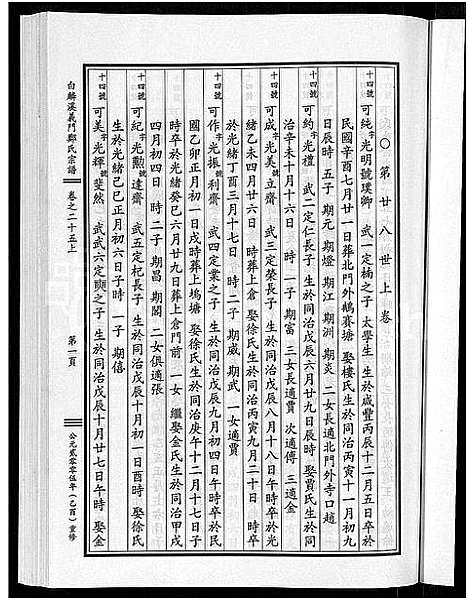 〇第廿八世上卷
十四號 可純字光明號璞卿 武一定楠之子 太學生 生於咸豐丙辰十二月五日卒於
民國辛酉七月廿一日葬北門外鵝賽塘 娶樓氏生於同治丙寅十一月初九
日辰時 五子 期元 期燈 期江 期洲 期炎 二女長適北門外寺口趙
十四號 可約字光禮 武二定仁長子 生於同治戊辰六月廿九日辰時 娶賈氏生於同
治辛未十月十六日 時 一子 期富 三女長適賈 次適傅 三適金
十四號 可成字光美 立齋 武三定榮長子 生於同治戊辰八月十八日午時卒於光
緒乙未四月廿六日 時葬上倉 娶徐氏生於同治丙寅九月二十日 時卒
於光緒丁酉三月十七日 時 二子 期威 期武 一女適賈
十四號 可作字光振 利齋 武四定業之子 生於同治戊辰九月初四日午時卒於民
國乙卯正月初一日戌時葬上塢塘 娶徐氏生於同治庚午十二月十七日子
時卒於光緒癸巳六月廿九日葬上倉門前 一女 繼娶金氏生於同治甲戌
四月初四日 時 二子 期昌 期閣 二女俱適張
十四號 可紀字光勳 達齋 武五定杞長子 生於同治戊辰十月初一日酉時 娶徐氏
生於光緒己巳正月初六日子時 一子 期僖
十四號 可美字光輝 斐然 武武六定 之子 生於同治戊辰十月廿七日午時 娶金
白麟溪義門鄭氏宗譜
卷之二十五上
第一頁
公元貳零零伍年(乙酉)重修